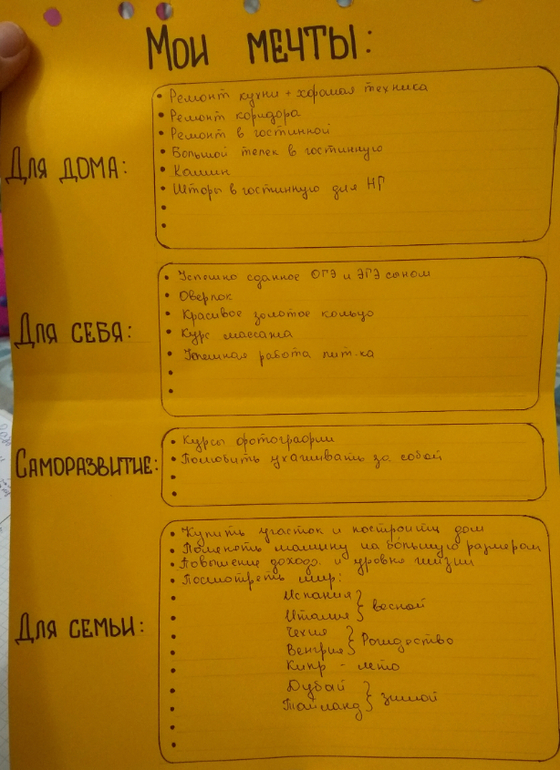 Мои мечты:
Для дома:
• Ремонт кухни + хорошая техника
• Ремонт коридора
• Ремонт в гостинной
• Большой телек в гостинную
• Камин
• Шторы в гостинную для НГ
Для себя:
• Успешно сданное ОГЭ и ЭГЭ сыном
• Оверлок
• Красивое золотое кольцо
• Курс массажа
• Успешная работа пит-ка
Саморазвитие:
• Курсы фотографии
• Полюбить ухаживать за собой
Для семьи:
• Купить участок и построить дом
• Поменять машину на большую размером
• Повышение дохода и уровня жизни
• Посмотреть мир:
Испания
Италия } весной
Чехия
Венгрия } Рождество
Кипр - лето
Дубай
Тайланд } зимой